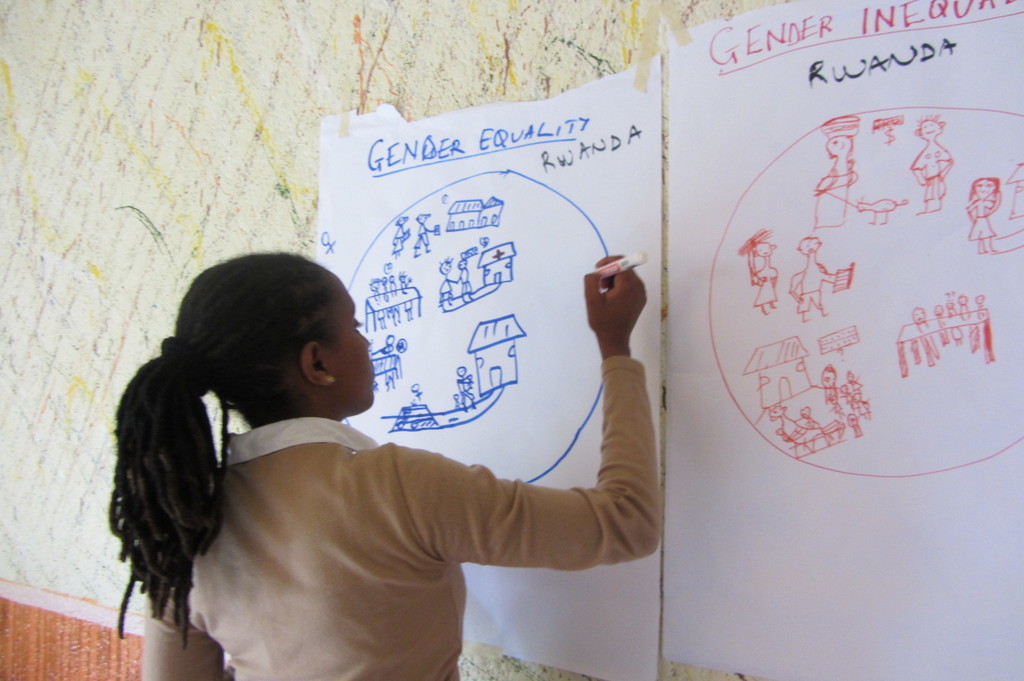 GENDER EQUALITY
RWANDA
GENDER
RWANDA